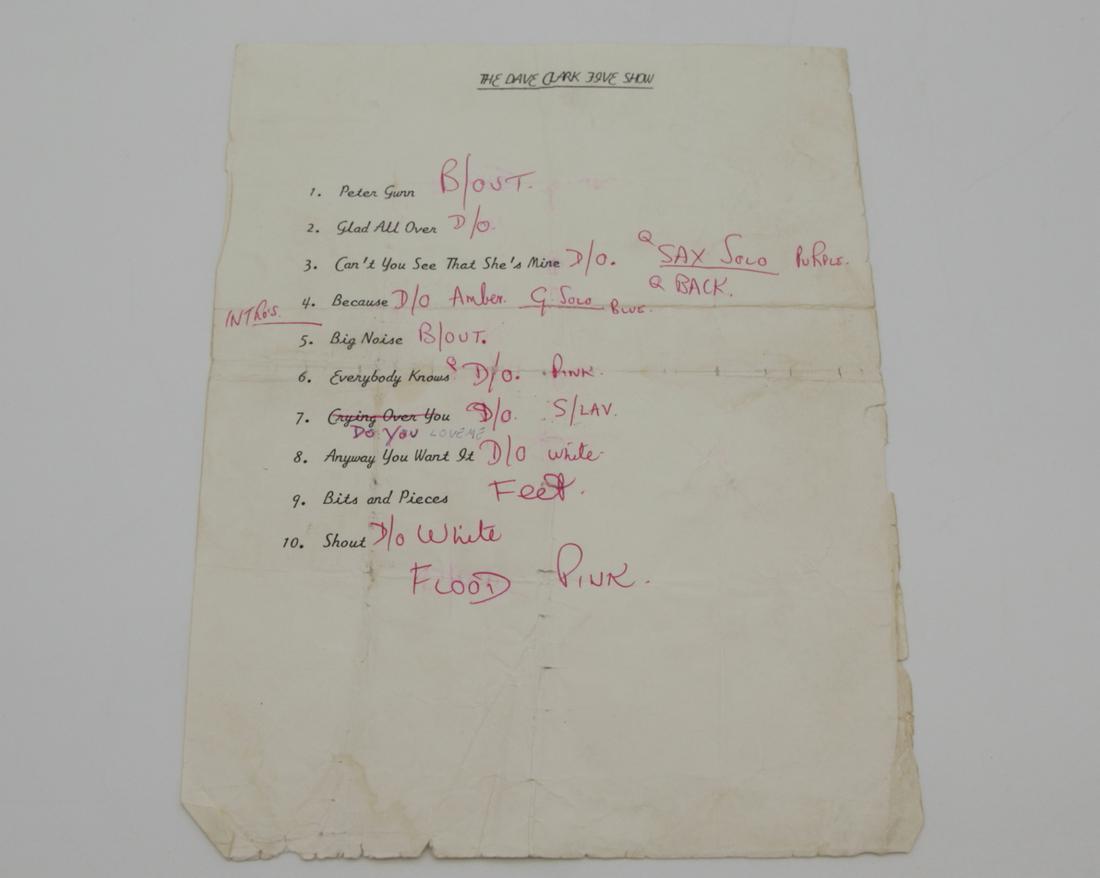 THE DAVE CLARK FIVE SHOW
1. Peter Gunn B/OUT.
2. Glad All Over D/O.
3. Can't You See That She's Mine D/O. Q SAX SOLO PURPLE.
Q BACK.
4. Because D/O Amber. G. SOLO BLUE.
INTRO'S.
5. Big Noise B/OUT.
6. Everybody Knows Q D/O. PINK.
7. Crying Over You D/O. S/LAV.
DO YOU LOVE ME
8. Anyway You Want It D/O White
9. Bits and Pieces Feet.
10. Shout D/O White
FLOOD PINK.